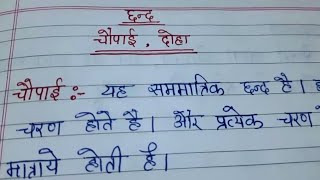 छन्द
चौपाई , दोहा
चौपाई :- यह सममात्रिक छन्द है।
चरण होते है। और प्रत्येक चरण
मात्राये होती है।